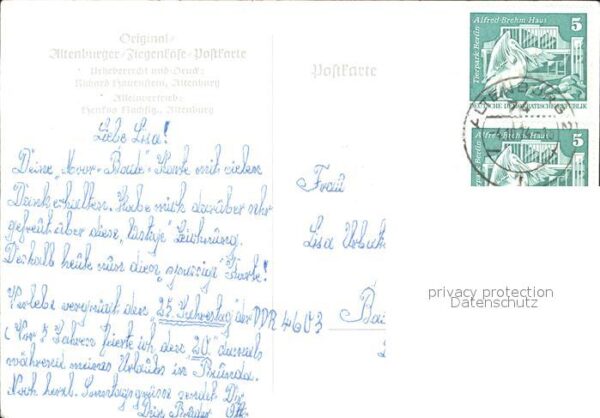 Original-
Altenburger-Ziegenkäse-Postkarte
Urheberrecht und Druck:
Richard Hauenstein, Altenburg
Alleinvertrieb:
Altenburg
Postkarte
Alfred-Brehm-Haus
5
Tierpark Berlin
DEUTSCHE DEMOKRATISCHE REPUBLIK
Alfred-Brehm-Haus
5
Tierpark Berlin
ALTENBURG
Liebe Lisa!
Deine „Moor-Bade"-Karte mit vielen
Dank erhalten. Habe mich darüber sehr
gefreut über diese „lustige" Zeichnung.
Deshalb heute nun diese Karte!
Verlebe vergnügt den „25. Jahrestag" der DDR
(Vor 5 Jahren feierte ich den „20." damals
während meines Urlaubs in
Noch herzl. Sonntagsgrüsse sendet Dir
Dein Bruder
Frau
Lisa
4603
Ba
privacy protection
Datenschutz